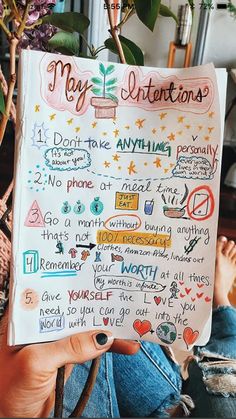 5:55 PM
72%
May Intentions
1. Don't take ANYTHING personally
It's not about you!
2. No phone at meal time
JUST EAT
3. Go a month without buying anything
that's not 100% necessary
Clothes, Amazon,
4. Remember your WORTH at all times
my worth is infinite
5. Give YOURSELF the LOVE you
need, so you can go out into the
World with LOVE!